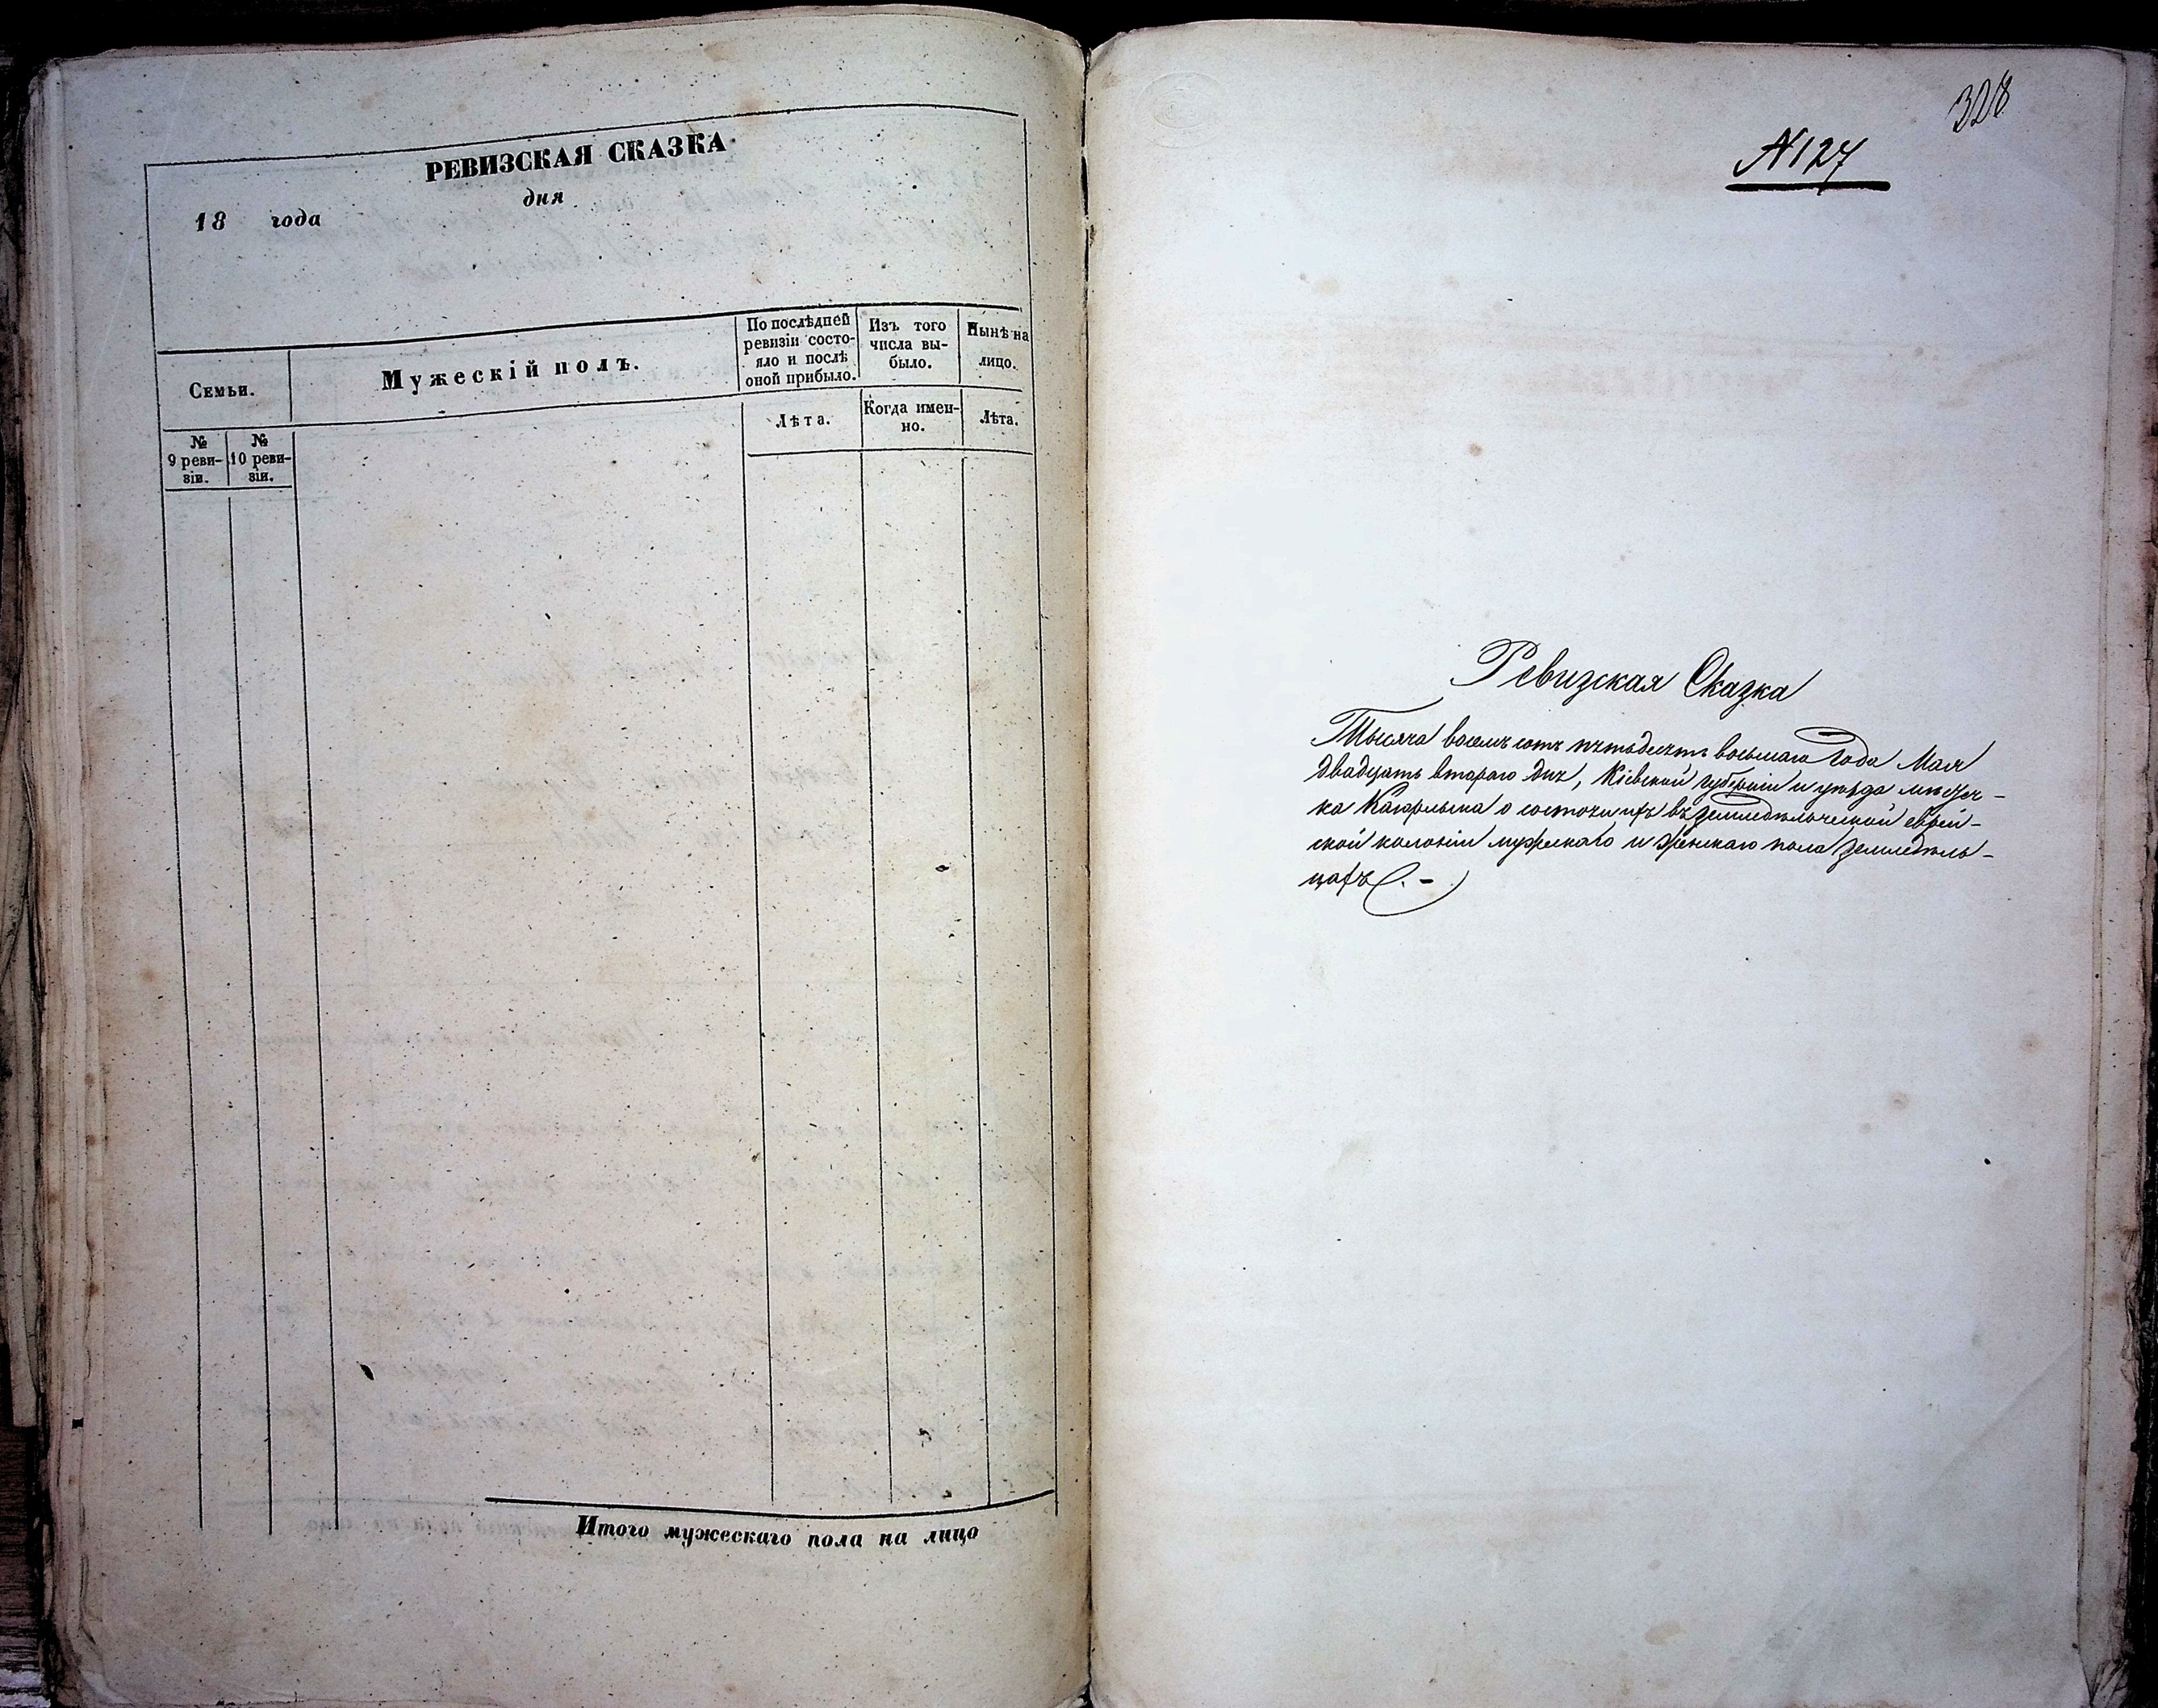 РЕВИЗСКАЯ СКАЗКА
18 года дня
Семьи.
Мужескій полъ.
По послѣдней
ревизіи состо-
яло и послѣ
оной прибыло.
Изъ того
числа вы-
было.
Нынѣ на
лицо.
Лѣта.
Когда имен-
но.
Лѣта.
№
9 реви-
зіи.
№
10 реви-
зіи.
Итого мужескаго пола на лицо
328
N127
Ревизская Сказка
Тысяча восемъ сотъ пятьдесятъ восьмаго года Мая
двадцать втораго дня, Кіевской губерніи и уѣзда мѣстеч-
ка Кагарлыка о состоящихъ въ земледѣльческой еврей-
ской колоніи мужескаго и женскаго пола земледѣль-
цахъ. -